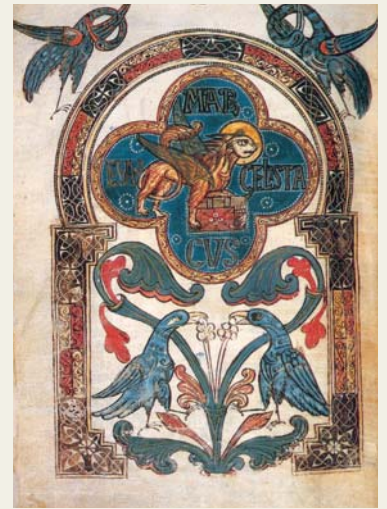 MAR
EVAN GELISTA
CVS